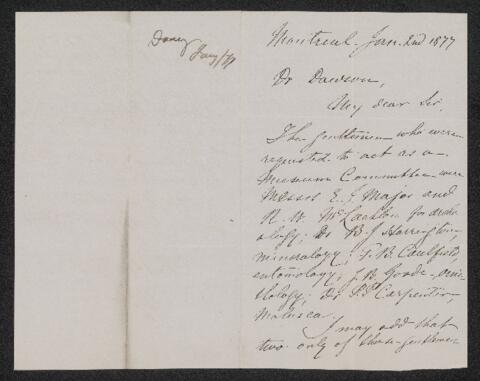 Jany/77
Montreal Jan. 2nd 1877
Dr Dawson,
My dear Sir,
The gentlemen who were
requested to act as a
Museum Committee were
Messrs E. J. Major and
R. W. McLachlan for archæ-
ology; Dr B. J. Harrington,
mineralogy; F. B. Caulfield,
entomology; J. B. Goode - orni-
thology; Dr P. P. Carpenter
Molusca.
I may add that
two only of these gentlemen